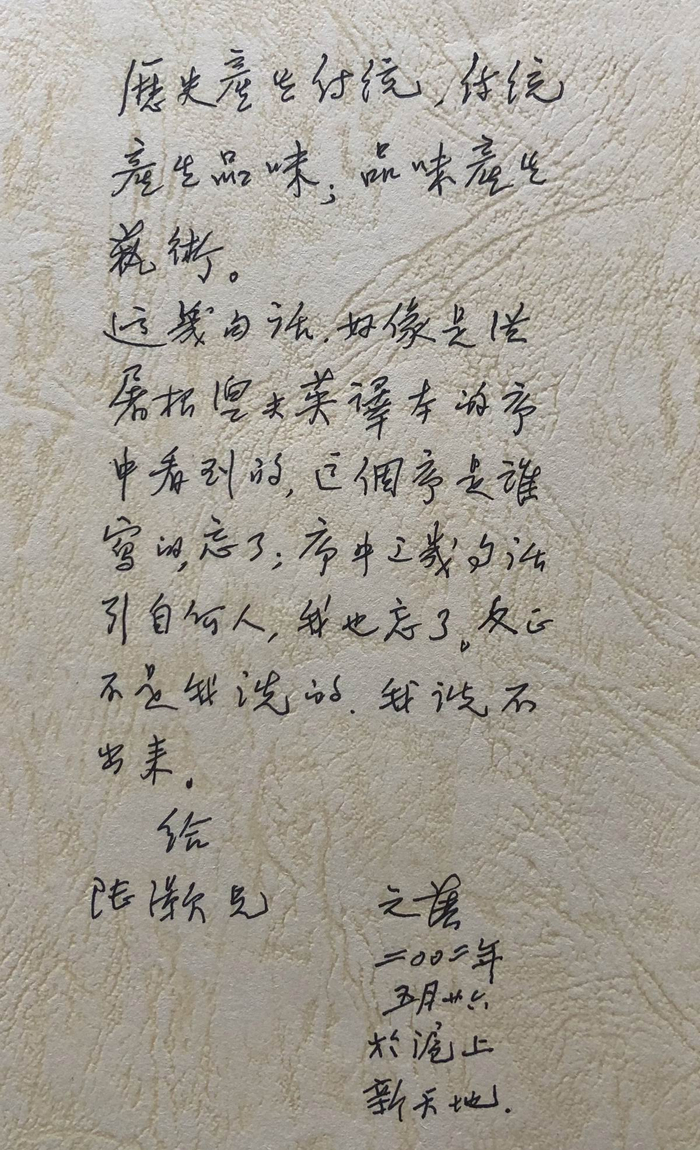 歷史產生传統，传統
產生品味；品味產生
藝術。
這幾句话，好像是從
屠格涅夫英譯本的序
中看到的，这個序是誰
寫的，忘了；序中这幾句话
引自何人，我也忘了。反正
不是我说的，我说不
出来。
给
陆灝兄
元甚
二〇〇二年
五月廿六
於滬上
新天地．